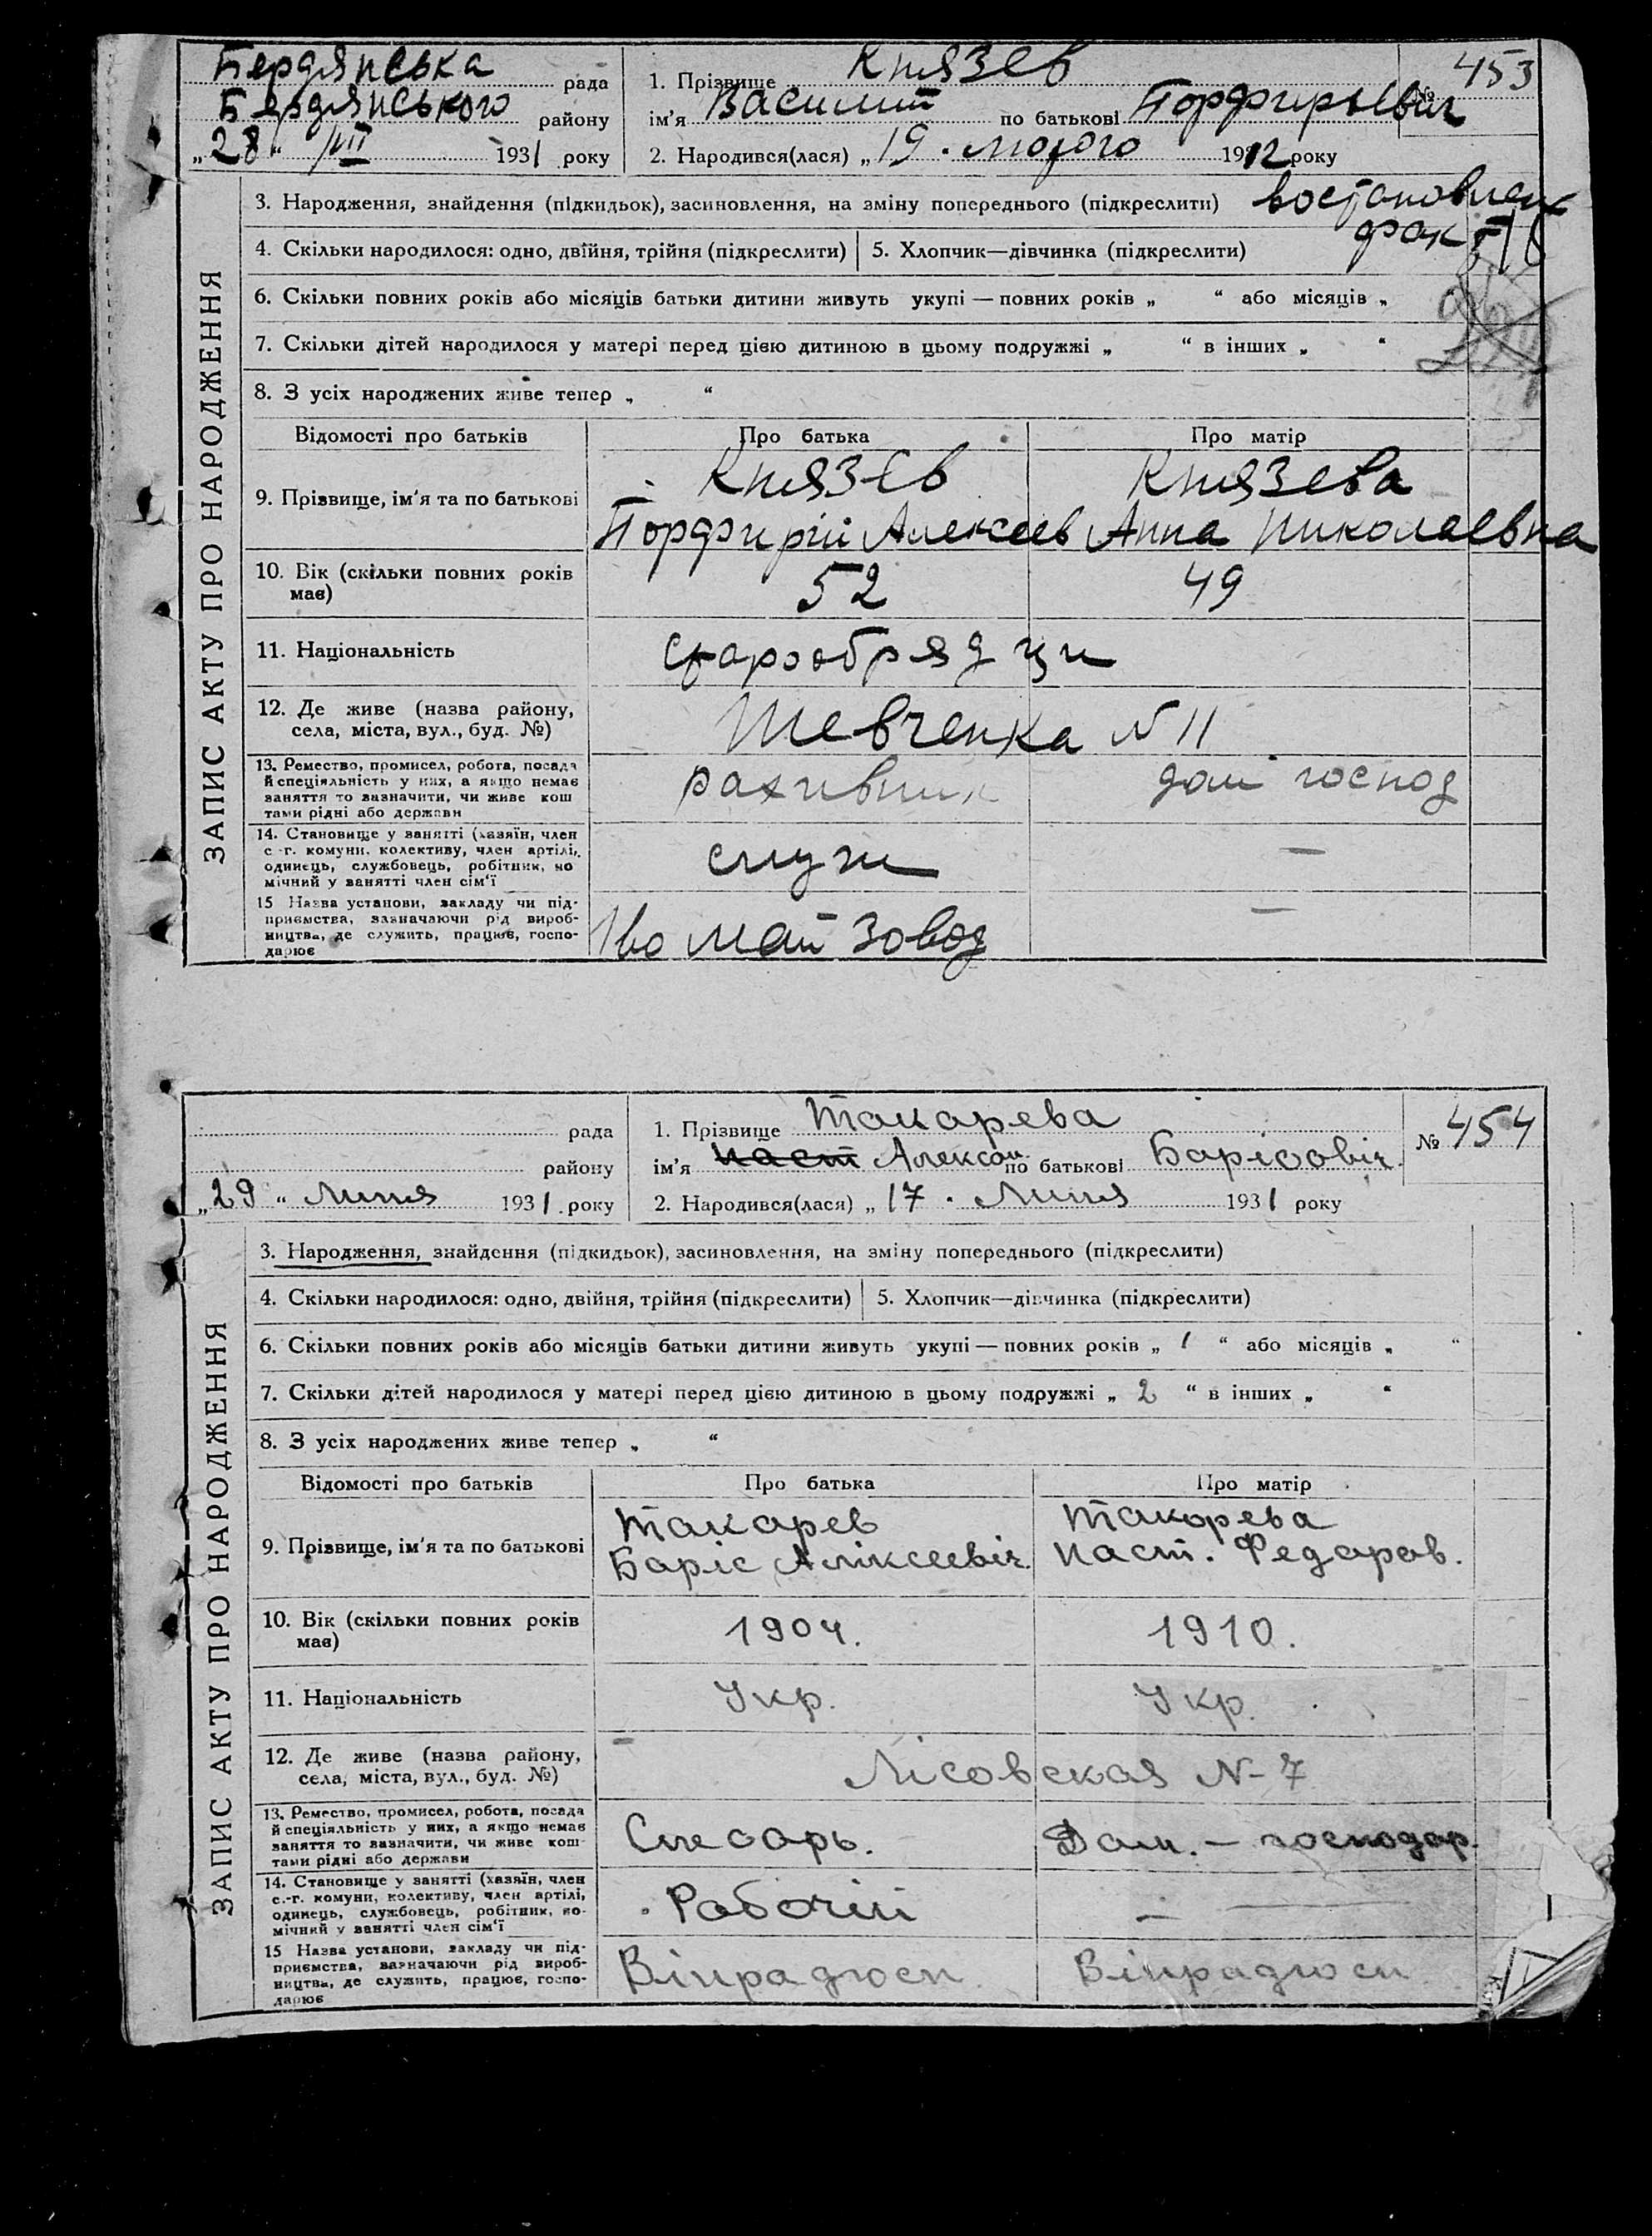 Бердянська рада
Бердянського району
„28“ VII 1931 року
1. Прізвище Князев
№ 453
ім'я Василий по батькові Порфирьевич
2. Народився(лася) „19. лютого 1912 року
ЗАПИС АКТУ ПРО НАРОДЖЕННЯ
3. Народження, знайдення (підкидьок), засиновлення, на зміну попереднього (підкреслити) востановлен
факт
4. Скільки народилося: одно, двійня, трійня (підкреслити)
5. Хлопчик—дівчинка (підкреслити)
6. Скільки повних років або місяців батьки дитини живуть укупі — повних років „ “ або місяців „ “
7. Скільки дітей народилося у матері перед цією дитиною в цьому подружжі „ “ в інших „ “
8. З усіх народжених живе тепер „ “
Відомості про батьків
Про батька
Про матір
9. Прізвище, ім'я та по батькові
Князев
Порфирій Алексеев
Князева
Анна Николаевна
10. Вік (скільки повних років
має)
52
49
11. Національність
старообрядци
12. Де живе (назва району,
села, міста, вул., буд. №)
Шевченка N 11
13. Ремество, промисел, робота, посада
й спеціяльність у них, а якщо немає
заняття то зазначити, чи живе кош
тами рідні або держави
рахивник
дом господ
14. Становище у занятті (хазяїн, член
с.-г. комуни, колективу, член артілі,
одинець, службовець, робітник, по
мічний у занятті член сім'ї
служ
—
15 Назва установи, закладу чи під-
приємства, зазначаючи рід вироб-
ництва, де служить, працює, госпо-
дарює
1го Май Завод
—
рада
району
„29“ Липня 1931 року
1. Прізвище Такарева
№ 454
ім'я Алексан по батькові Барісовіч.
2. Народився(лася) „17. Липня 1931 року
ЗАПИС АКТУ ПРО НАРОДЖЕННЯ
3. Народження, знайдення (підкидьок), засиновлення, на зміну попереднього (підкреслити)
4. Скільки народилося: одно, двійня, трійня (підкреслити)
5. Хлопчик—дівчинка (підкреслити)
6. Скільки повних років або місяців батьки дитини живуть укупі — повних років „ 1 “ або місяців „ “
7. Скільки дітей народилося у матері перед цією дитиною в цьому подружжі „ 2 “ в інших „ “
8. З усіх народжених живе тепер „ “
Відомості про батьків
Про батька
Про матір
9. Прізвище, ім'я та по батькові
Такарев
Баріс Аліксеевіч.
Такарева
Наст. Федаров.
10. Вік (скільки повних років
має)
1904.
1910.
11. Національність
Укр.
Укр.
12. Де живе (назва району,
села, міста, вул., буд. №)
Лісовская N-7
13. Ремество, промисел, робота, посада
й спеціяльність у них, а якщо немає
заняття то зазначити, чи живе кош-
тами рідні або держави
Слесарь.
Дом. – господар.
14. Становище у занятті (хазяїн, член
с.-г. комуни, колективу, член артілі,
одинець, службовець, робітник, по-
мічний у занятті член сім'ї
Рабочій
—
15 Назва установи, закладу чи під-
приємства, зазначаючи рід вироб-
ництва, де служить, працює, госпо-
дарює